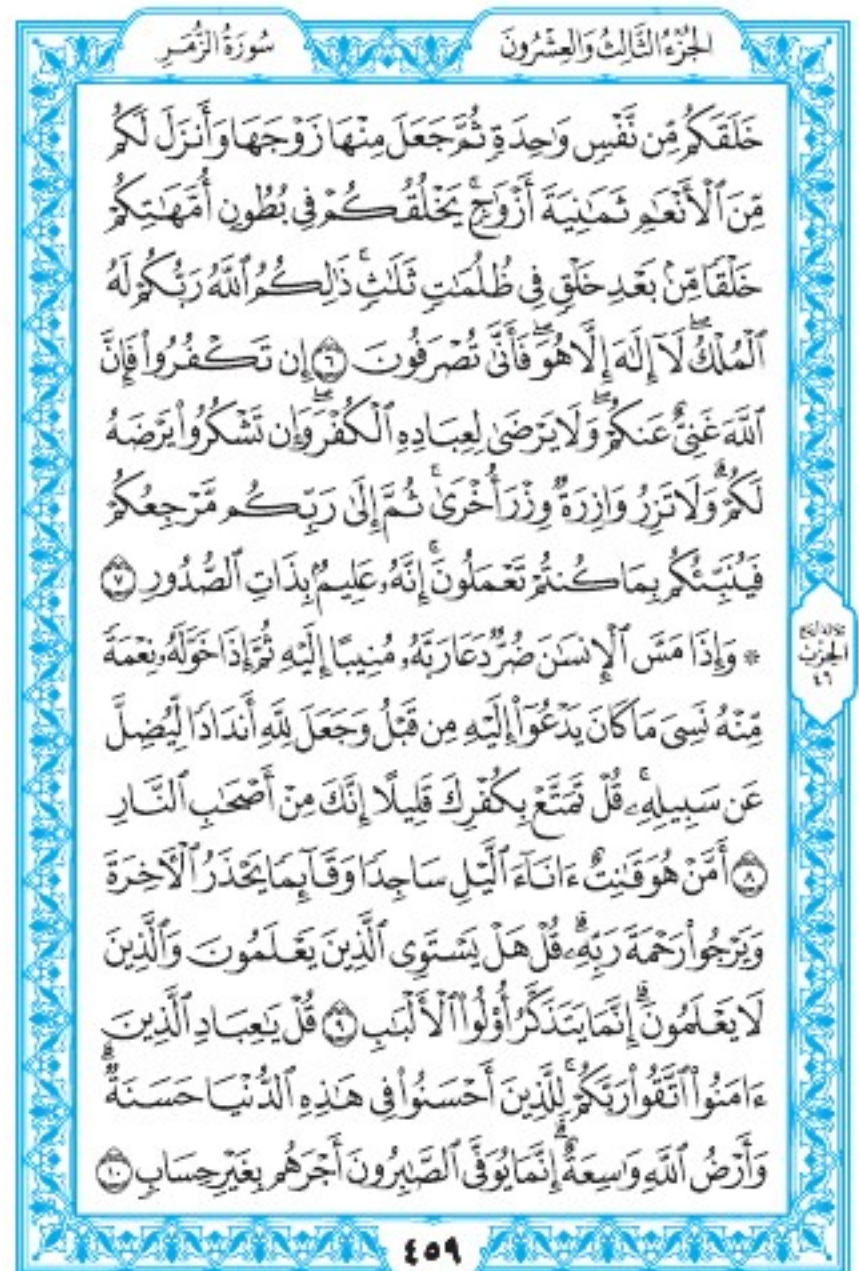 الجُزْءُ الثَّالِثُ وَالعِشْرُونَ
سُورَةُ الزُّمَرِ
خَلَقَكُم مِّن نَّفْسٍ وَٰحِدَةٍ ثُمَّ جَعَلَ مِنْهَا زَوْجَهَا وَأَنزَلَ لَكُم
مِّنَ ٱلْأَنْعَٰمِ ثَمَٰنِيَةَ أَزْوَٰجٍ ۚ يَخْلُقُكُمْ فِى بُطُونِ أُمَّهَٰتِكُمْ
خَلْقًا مِّنۢ بَعْدِ خَلْقٍ فِى ظُلُمَٰتٍ ثَلَٰثٍ ۚ ذَٰلِكُمُ ٱللَّهُ رَبُّكُمْ لَهُ
ٱلْمُلْكُ ۖ لَآ إِلَٰهَ إِلَّا هُوَ ۖ فَأَنَّىٰ تُصْرَفُونَ ۝٦ إِن تَكْفُرُوا۟ فَإِنَّ
ٱللَّهَ غَنِىٌّ عَنكُمْ ۖ وَلَا يَرْضَىٰ لِعِبَادِهِ ٱلْكُفْرَ ۖ وَإِن تَشْكُرُوا۟ يَرْضَهُ
لَكُمْ ۗ وَلَا تَزِرُ وَازِرَةٌ وِزْرَ أُخْرَىٰ ۚ ثُمَّ إِلَىٰ رَبِّكُم مَّرْجِعُكُمْ
فَيُنَبِّئُكُم بِمَا كُنتُمْ تَعْمَلُونَ ۚ إِنَّهُۥ عَلِيمٌۢ بِذَاتِ ٱلصُّدُورِ ۝٧
۞ وَإِذَا مَسَّ ٱلْإِنسَٰنَ ضُرٌّ دَعَا رَبَّهُۥ مُنِيبًا إِلَيْهِ ثُمَّ إِذَا خَوَّلَهُۥ نِعْمَةً
مِّنْهُ نَسِىَ مَا كَانَ يَدْعُوٓا۟ إِلَيْهِ مِن قَبْلُ وَجَعَلَ لِلَّهِ أَندَادًا لِّيُضِلَّ
عَن سَبِيلِهِۦ ۚ قُلْ تَمَتَّعْ بِكُفْرِكَ قَلِيلًا ۖ إِنَّكَ مِنْ أَصْحَٰبِ ٱلنَّارِ
۝٨ أَمَّنْ هُوَ قَٰنِتٌ ءَانَآءَ ٱلَّيْلِ سَاجِدًا وَقَآئِمًا يَحْذَرُ ٱلْءَاخِرَةَ
وَيَرْجُوا۟ رَحْمَةَ رَبِّهِۦ ۗ قُلْ هَلْ يَسْتَوِى ٱلَّذِينَ يَعْلَمُونَ وَٱلَّذِينَ
لَا يَعْلَمُونَ ۗ إِنَّمَا يَتَذَكَّرُ أُو۟لُوا۟ ٱلْأَلْبَٰبِ ۝٩ قُلْ يَٰعِبَادِ ٱلَّذِينَ
ءَامَنُوا۟ ٱتَّقُوا۟ رَبَّكُمْ ۚ لِلَّذِينَ أَحْسَنُوا۟ فِى هَٰذِهِ ٱلدُّنْيَا حَسَنَةٌ ۗ
وَأَرْضُ ٱللَّهِ وَٰسِعَةٌ ۗ إِنَّمَا يُوَفَّى ٱلصَّٰبِرُونَ أَجْرَهُم بِغَيْرِ حِسَابٍ ۝١٠
الحِزْب
٤٦
٤٥٩